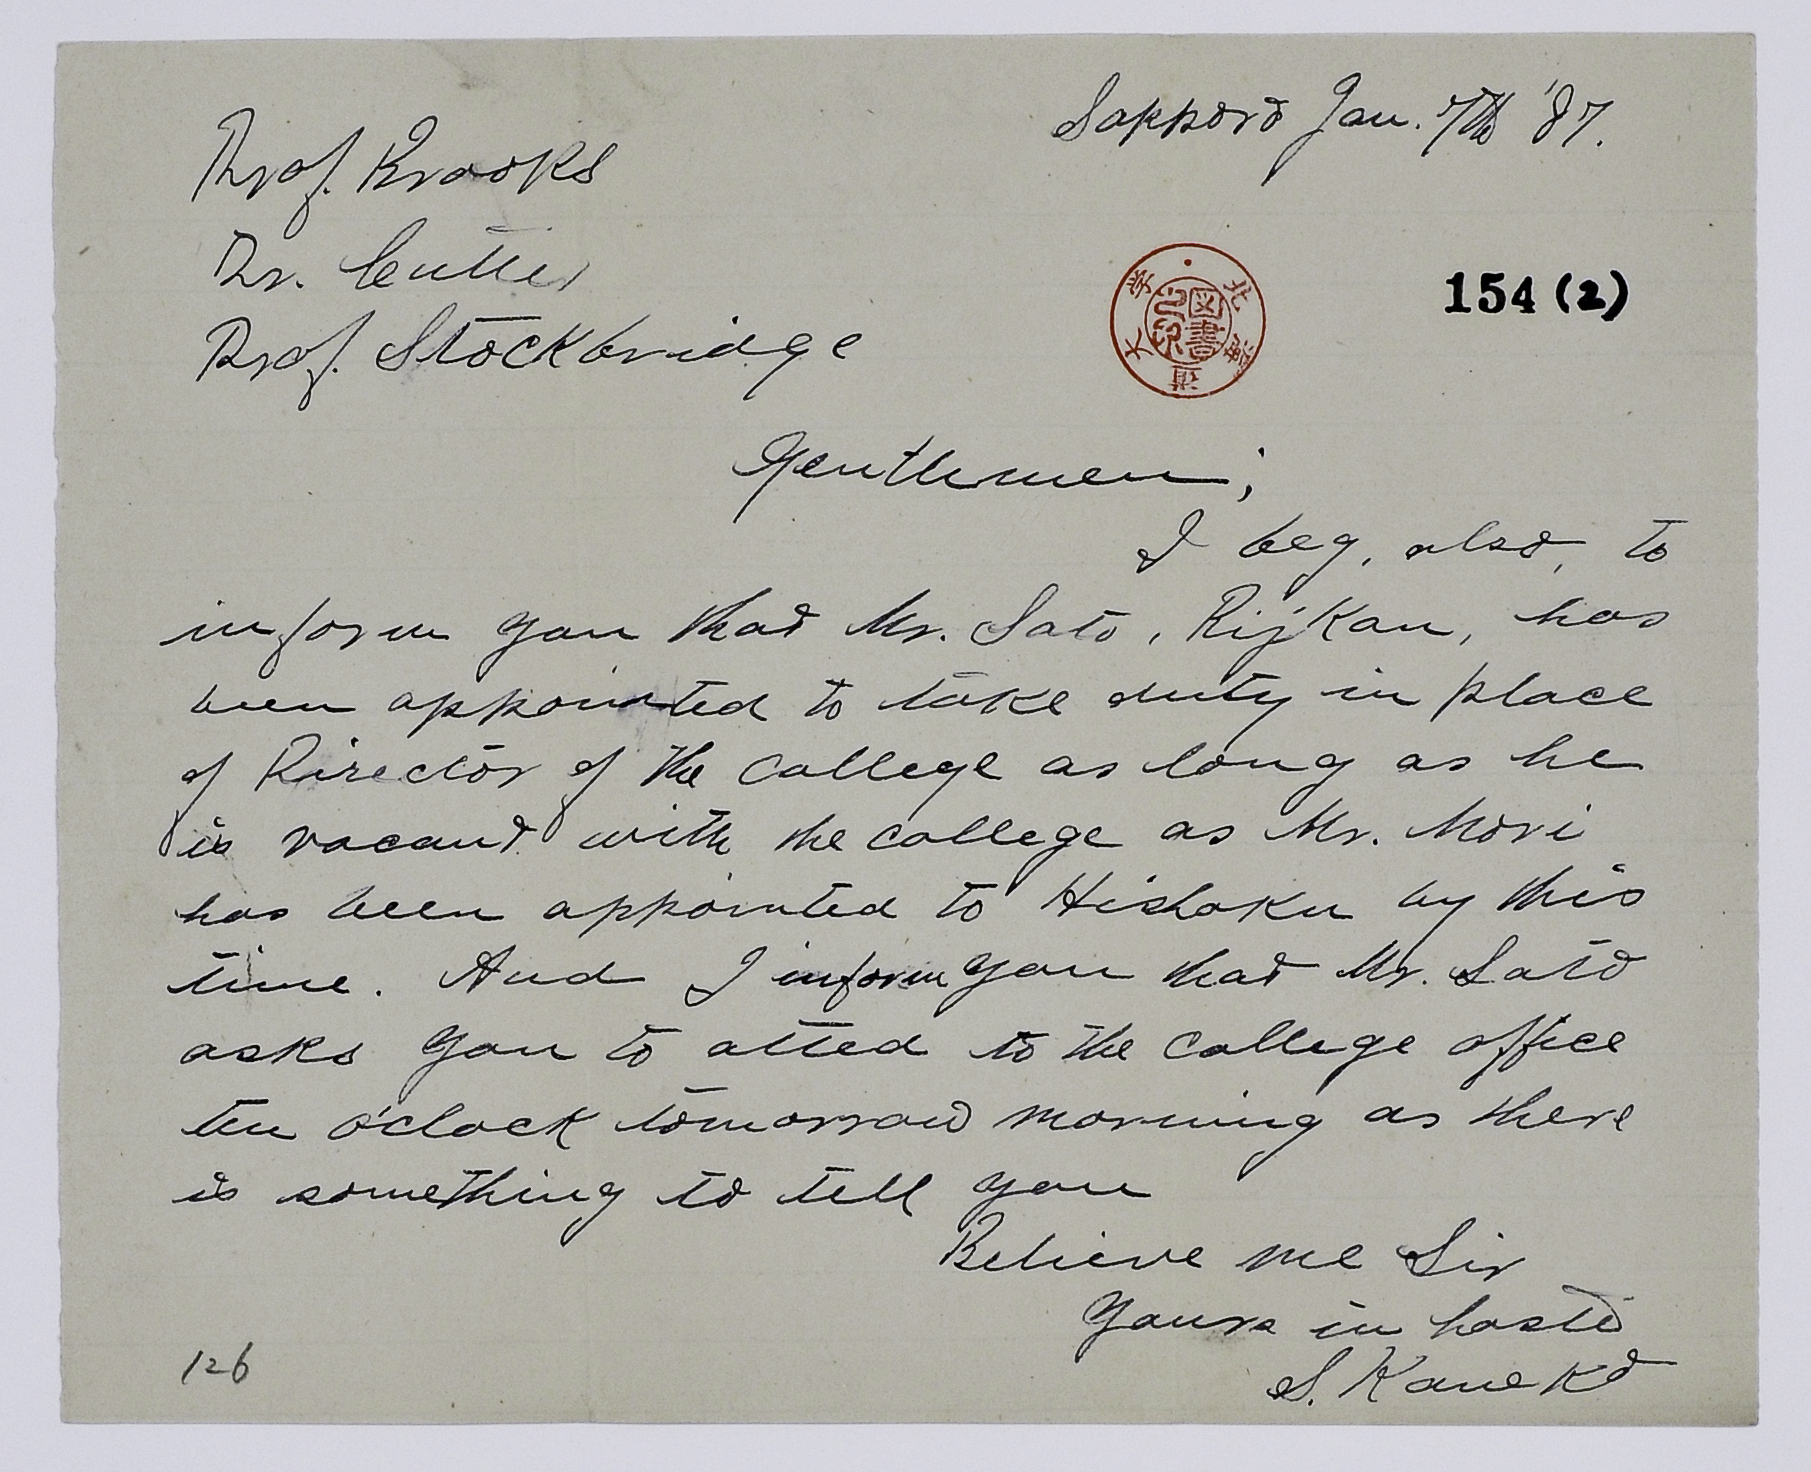 Sapporo Jan. 7th '87.
Prof. Brooks
Dr. Cutter
Prof. Stockbridge
北海道大学
図書之印
154 (2)
Gentlemen;
I beg, also, to
inform you that Mr. Sato, Rijikan, has
been appointed to take duty in place
of Director of the College as long as he
is vacant with the college as Mr. Mori
has been appointed to Hishoku by this
time. And I inform you that Mr. Sato
asks you to atted to the College office
ten o'clock tomorrow morning as there
is something to tell you
Believe me Sir
Yours in haste
S. Kaneko
126